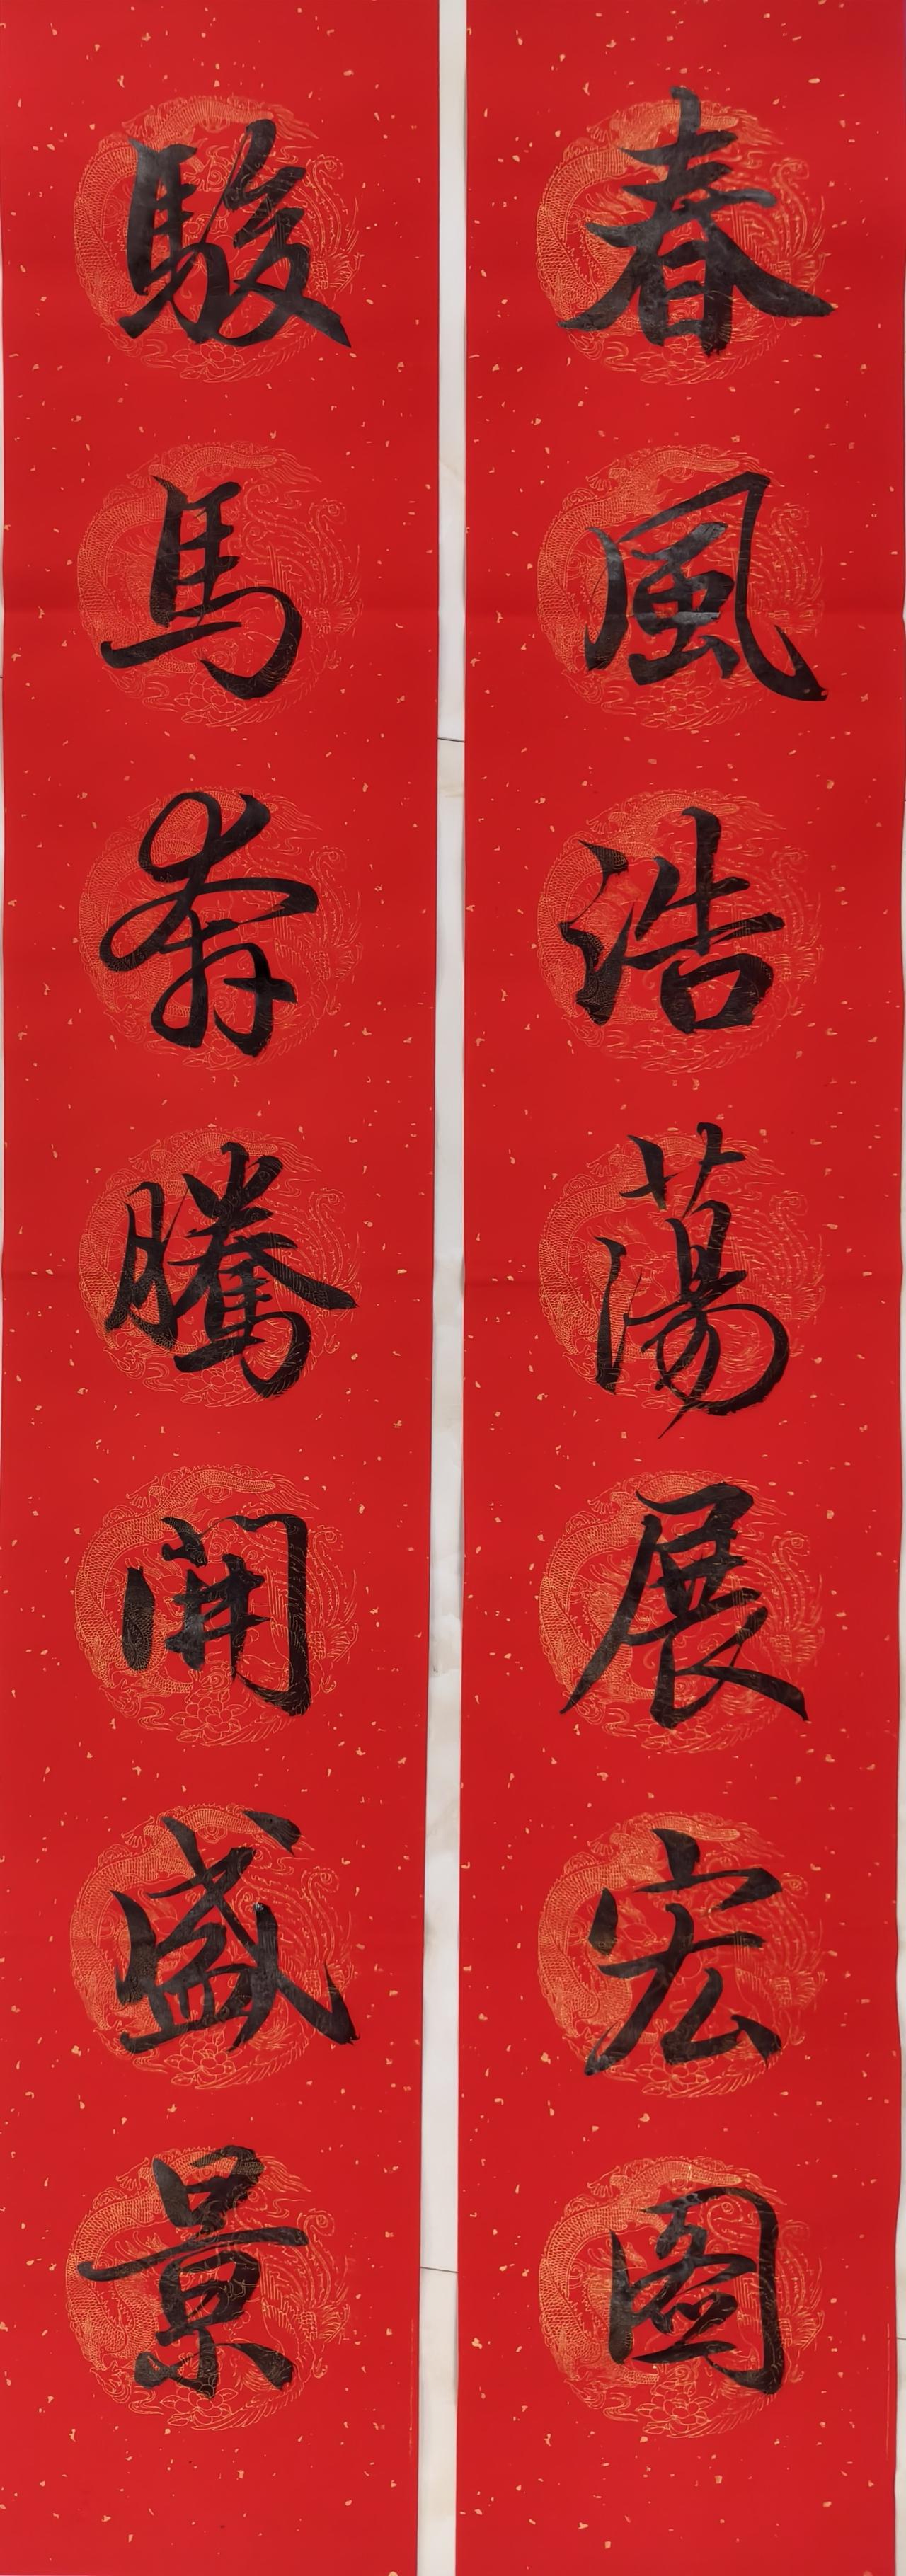 春風浩蕩展宏圖
駿馬奔騰開盛景